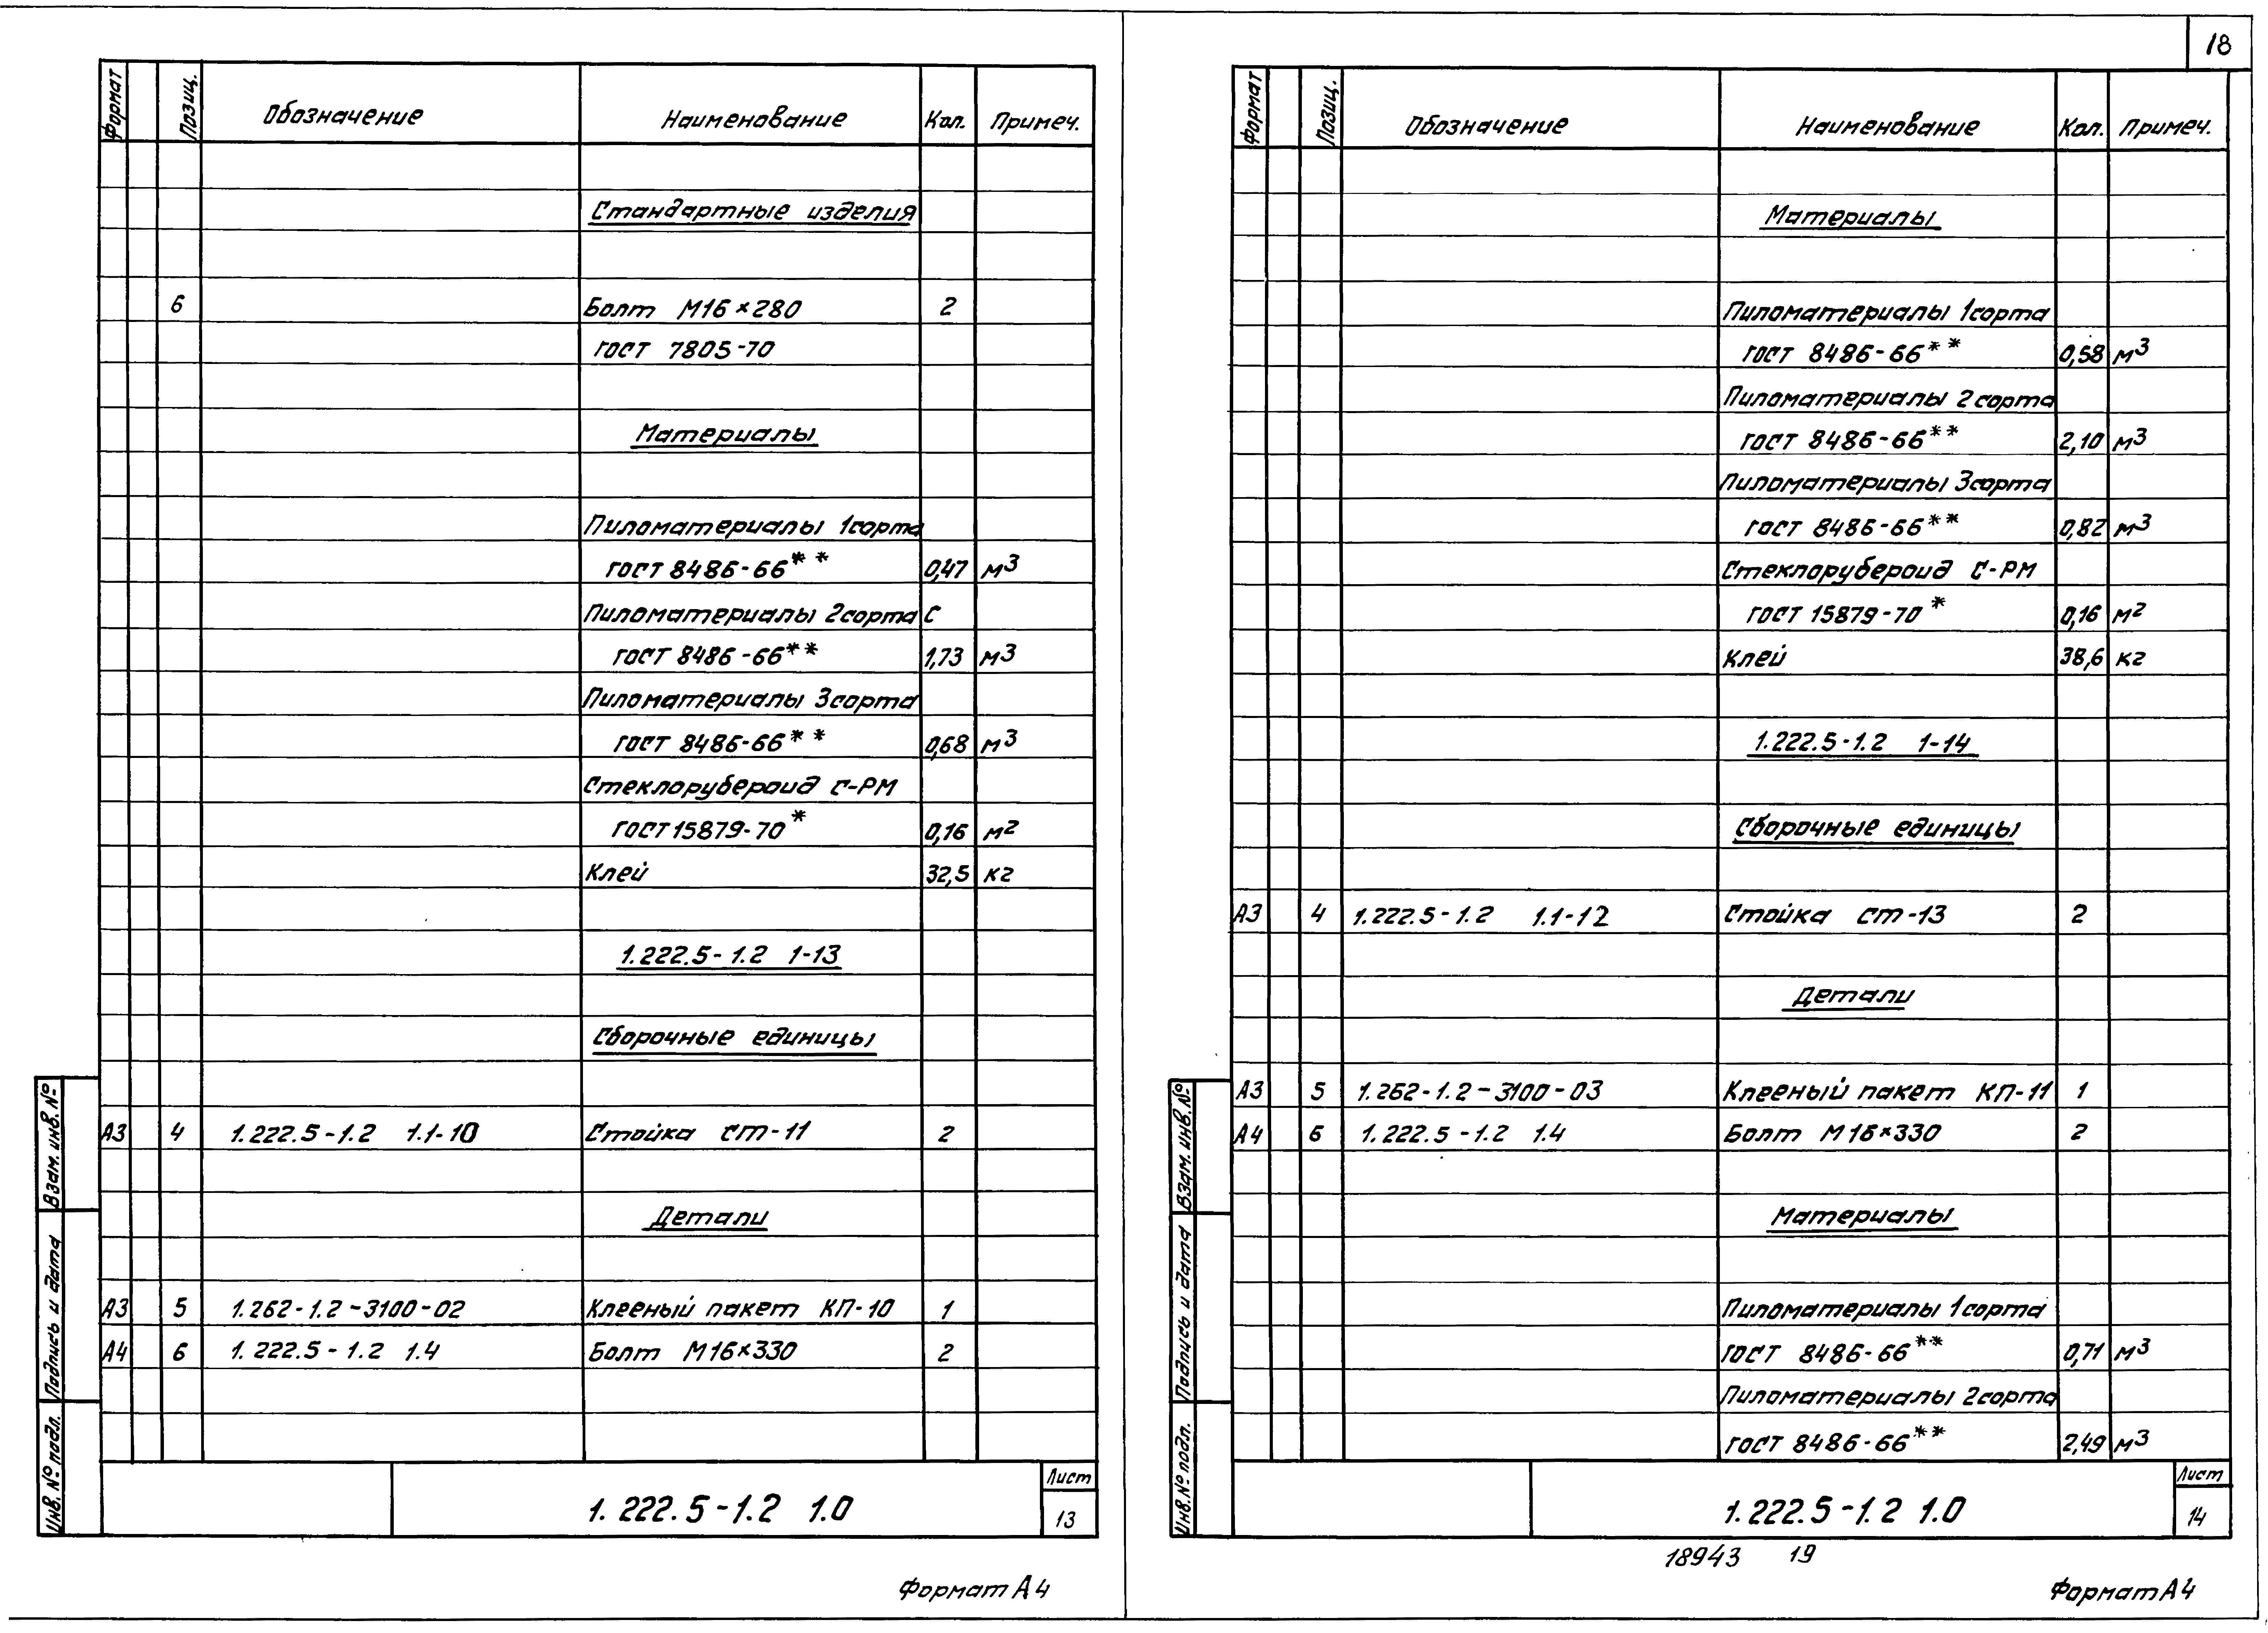 18
Формат Позиц. Обозначение Наименование Кол. Примеч.
Стандартные изделия
6 Болт М16×280 2
ГОСТ 7805-70
Материалы
Пиломатериалы 1сорта
ГОСТ 8486-66** 0,47 м3
Пиломатериалы 2сорта С
ГОСТ 8486-66** 1,73 м3
Пиломатериалы 3сорта
ГОСТ 8486-66** 0,68 м3
Стеклорубероид С-РМ
ГОСТ 15879-70* 0,16 м2
Клей 32,5 кг
1.222.5-1.2 1-13
Сборочные единицы
А3 4 1.222.5-1.2 1.1-10 Стойка СТ-11 2
Детали
А3 5 1.262-1.2-3100-02 Клееный пакет КП-10 1
А4 6 1.222.5-1.2 1.4 Болт М16×330 2
Взам. инв. №
Подпись и дата
Инв. № подл.
1.222.5-1.2 1.0
Лист
13
Формат А4
Формат Позиц. Обозначение Наименование Кол. Примеч.
Материалы
Пиломатериалы 1сорта
ГОСТ 8486-66** 0,58 м3
Пиломатериалы 2сорта
ГОСТ 8486-66** 2,10 м3
Пиломатериалы 3сорта
ГОСТ 8486-66** 0,82 м3
Стеклорубероид С-РМ
ГОСТ 15879-70* 0,16 м2
Клей 38,6 кг
1.222.5-1.2 1-14
Сборочные единицы
А3 4 1.222.5-1.2 1.1-12 Стойка СТ-13 2
Детали
А3 5 1.262-1.2-3100-03 Клееный пакет КП-11 1
А4 6 1.222.5-1.2 1.4 Болт М16×330 2
Материалы
Пиломатериалы 1сорта
ГОСТ 8486-66** 0,71 м3
Пиломатериалы 2сорта
ГОСТ 8486-66** 2,49 м3
Взам. инв. №
Подпись и дата
Инв. № подл.
1.222.5-1.2 1.0
Лист
14
18943 19
Формат А4